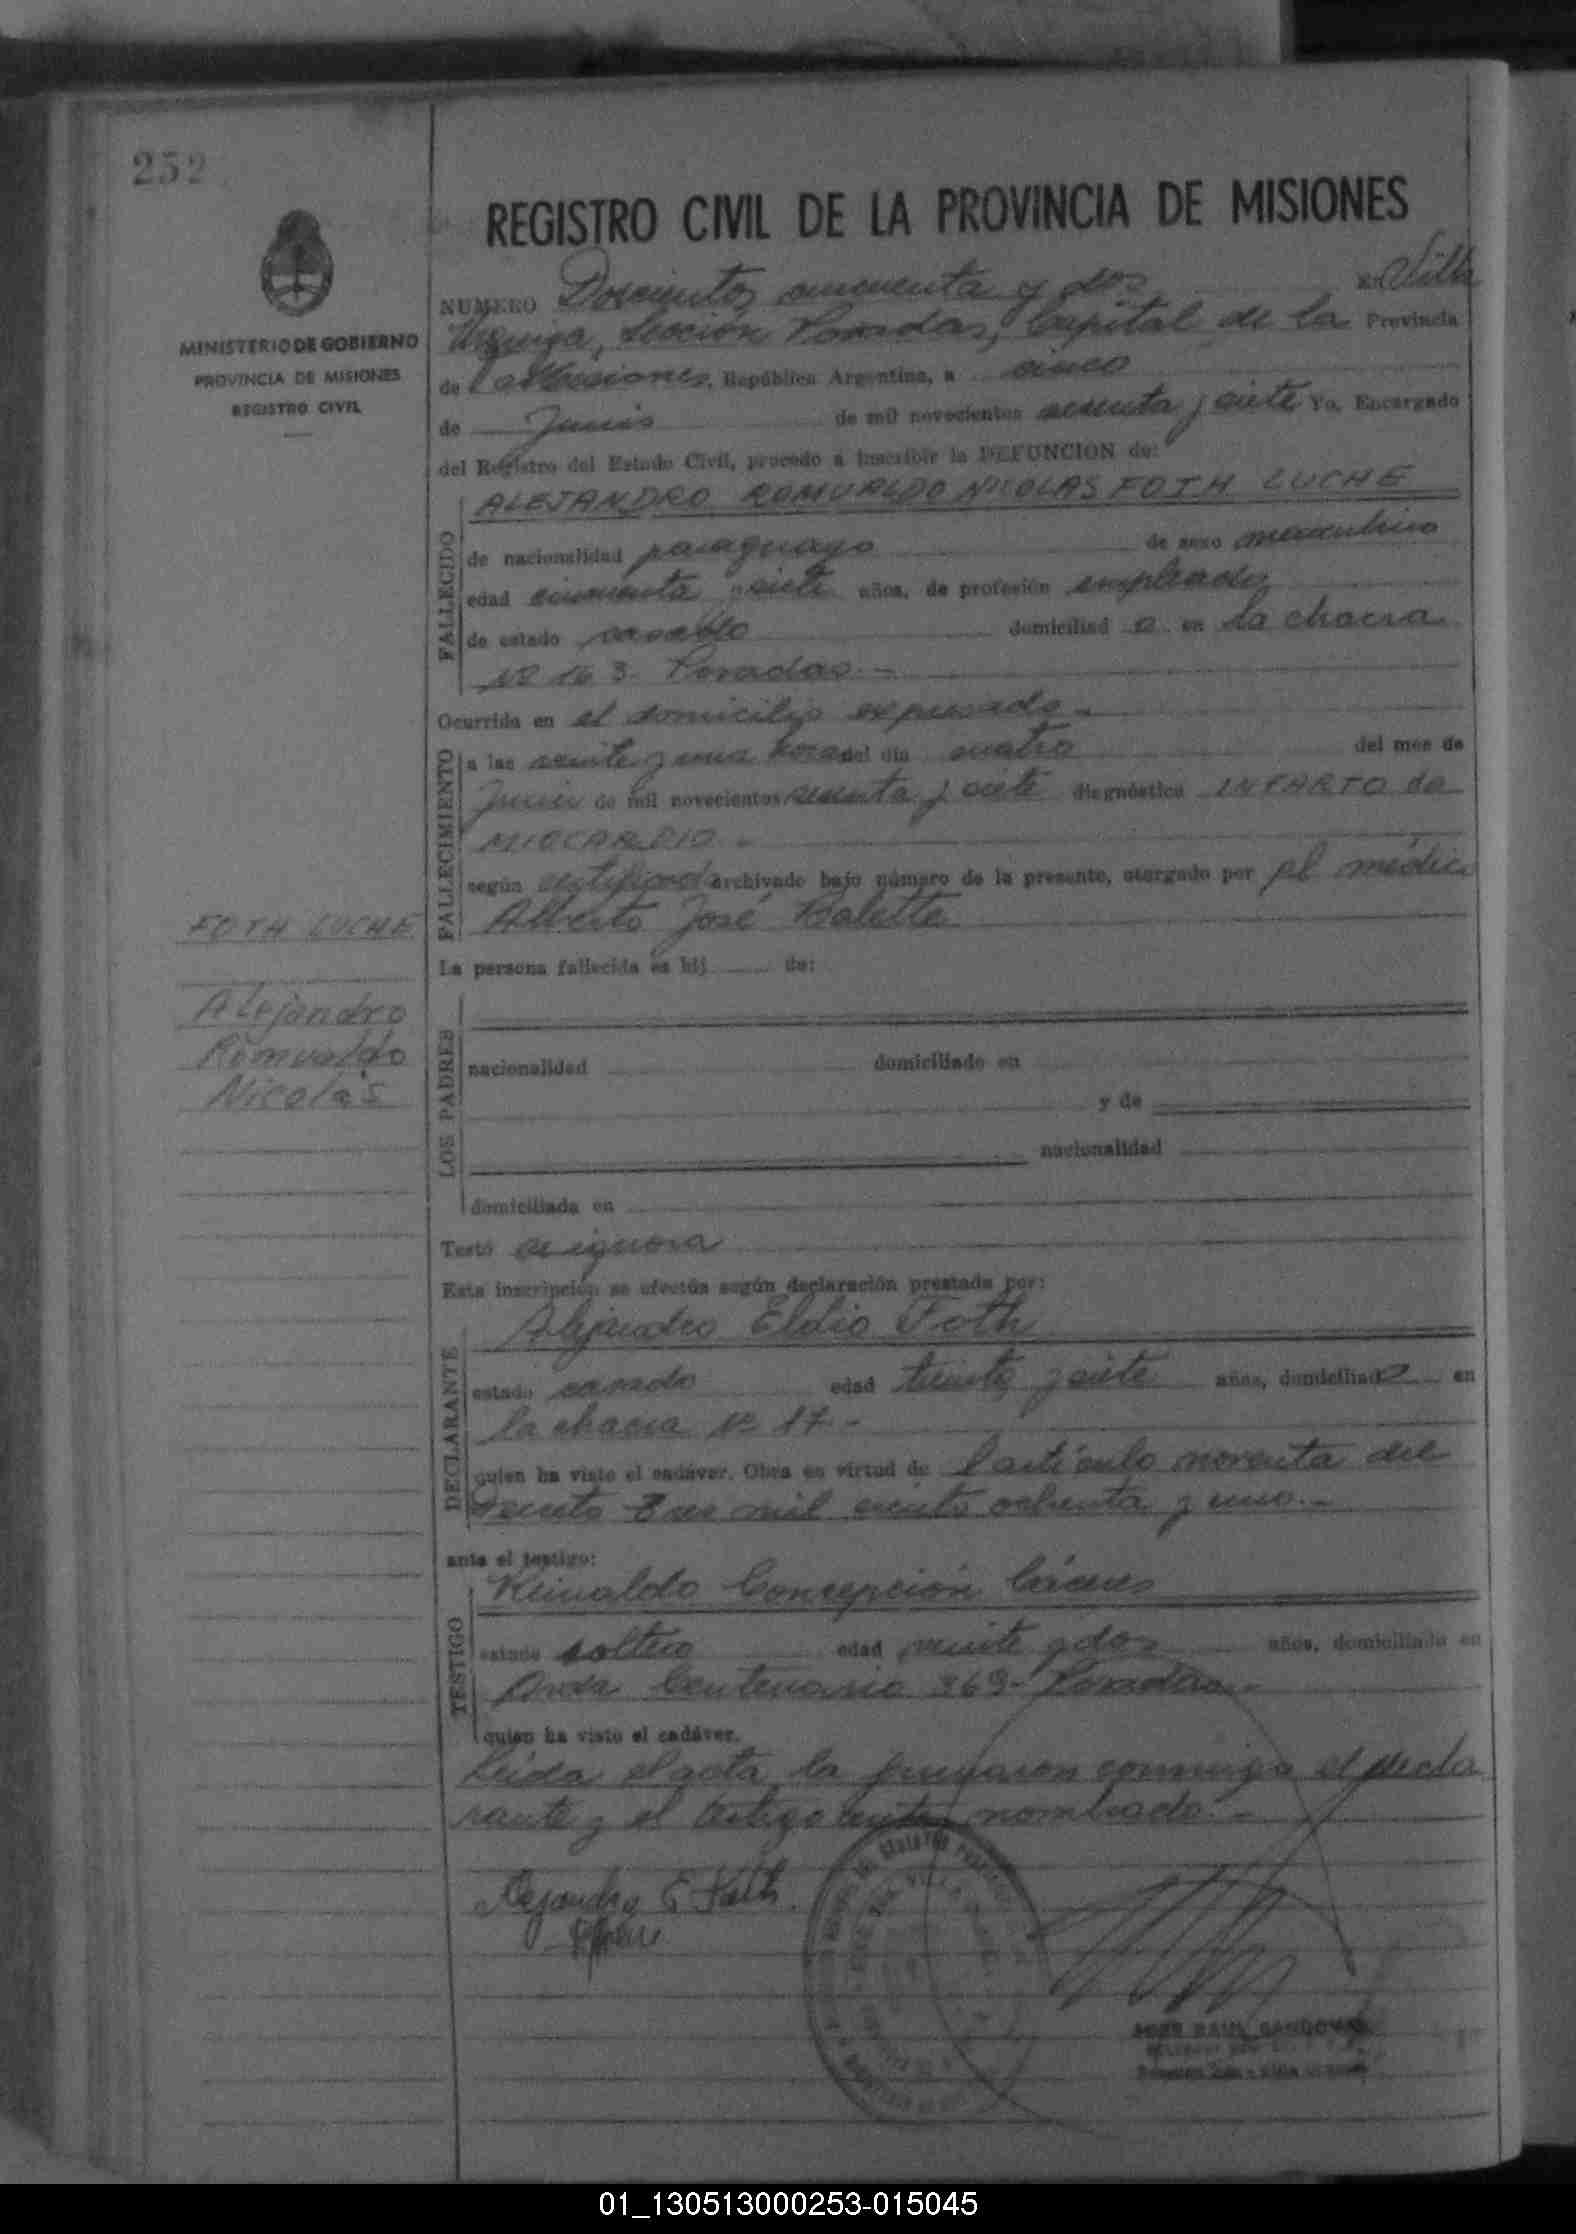 252
REGISTRO CIVIL DE LA PROVINCIA DE MISIONES
MINISTERIO DE GOBIERNO
PROVINCIA DE MISIONES
REGISTRO CIVIL
NUMERO Doscientos cincuenta y dos Villa
Urquiza, Sección Posadas, Capital de la Provincia
de Misiones, República Argentina, a cinco
de Junio de mil novecientos sesenta y siete Yo, Encargado
del Registro del Estado Civil, procedo a inscribir la DEFUNCION de:
FALLECIDO
ALEJANDRO ROMUALDO NICOLAS FOTH LUCHE
de nacionalidad paraguayo de sexo masculino
edad cincuenta y siete años, de profesión empleado
de estado casado domiciliad o en la chacra
Nº 163 Posadas.-
Ocurrida en el domicilio expresado.-
FALLECIMIENTO
a las veinte y una horas del día cuatro del mes de
Junio de mil novecientos sesenta y siete diagnóstico INFARTO de
MIOCARDIO.-
según certificado archivado bajo número de la presente, otorgado por el médico
Alberto José
FOTH LUCHE
Alejandro
Romualdo
Nicolás
La persona fallecida es hij de:
LOS PADRES
nacionalidad domiciliado en
y de
nacionalidad
domiciliada en
Testó se ignora
Esta inscripción se efectúa según declaración prestada por:
DECLARANTE
Alejandro Eldio Foth
estado casado edad treinta y siete años, domiciliado en
la chacra Nº 17.-
quien ha visto el cadáver. Obra en virtud de l artículo noventa del
Decreto mil ciento ochenta y uno.-
ante el testigo:
TESTIGO
Reinaldo Concepción Cáceres
estado soltero edad veinte y dos años, domiciliado en
Avda Centenario 369- Posadas.-
quien ha visto el cadáver.
Leída el acta, la firmaron conmigo el decla
rante y el testigo nombrado.-
Alejandro E Foth
JOSE RAUL SANDOVAL
01_130513000253-015045